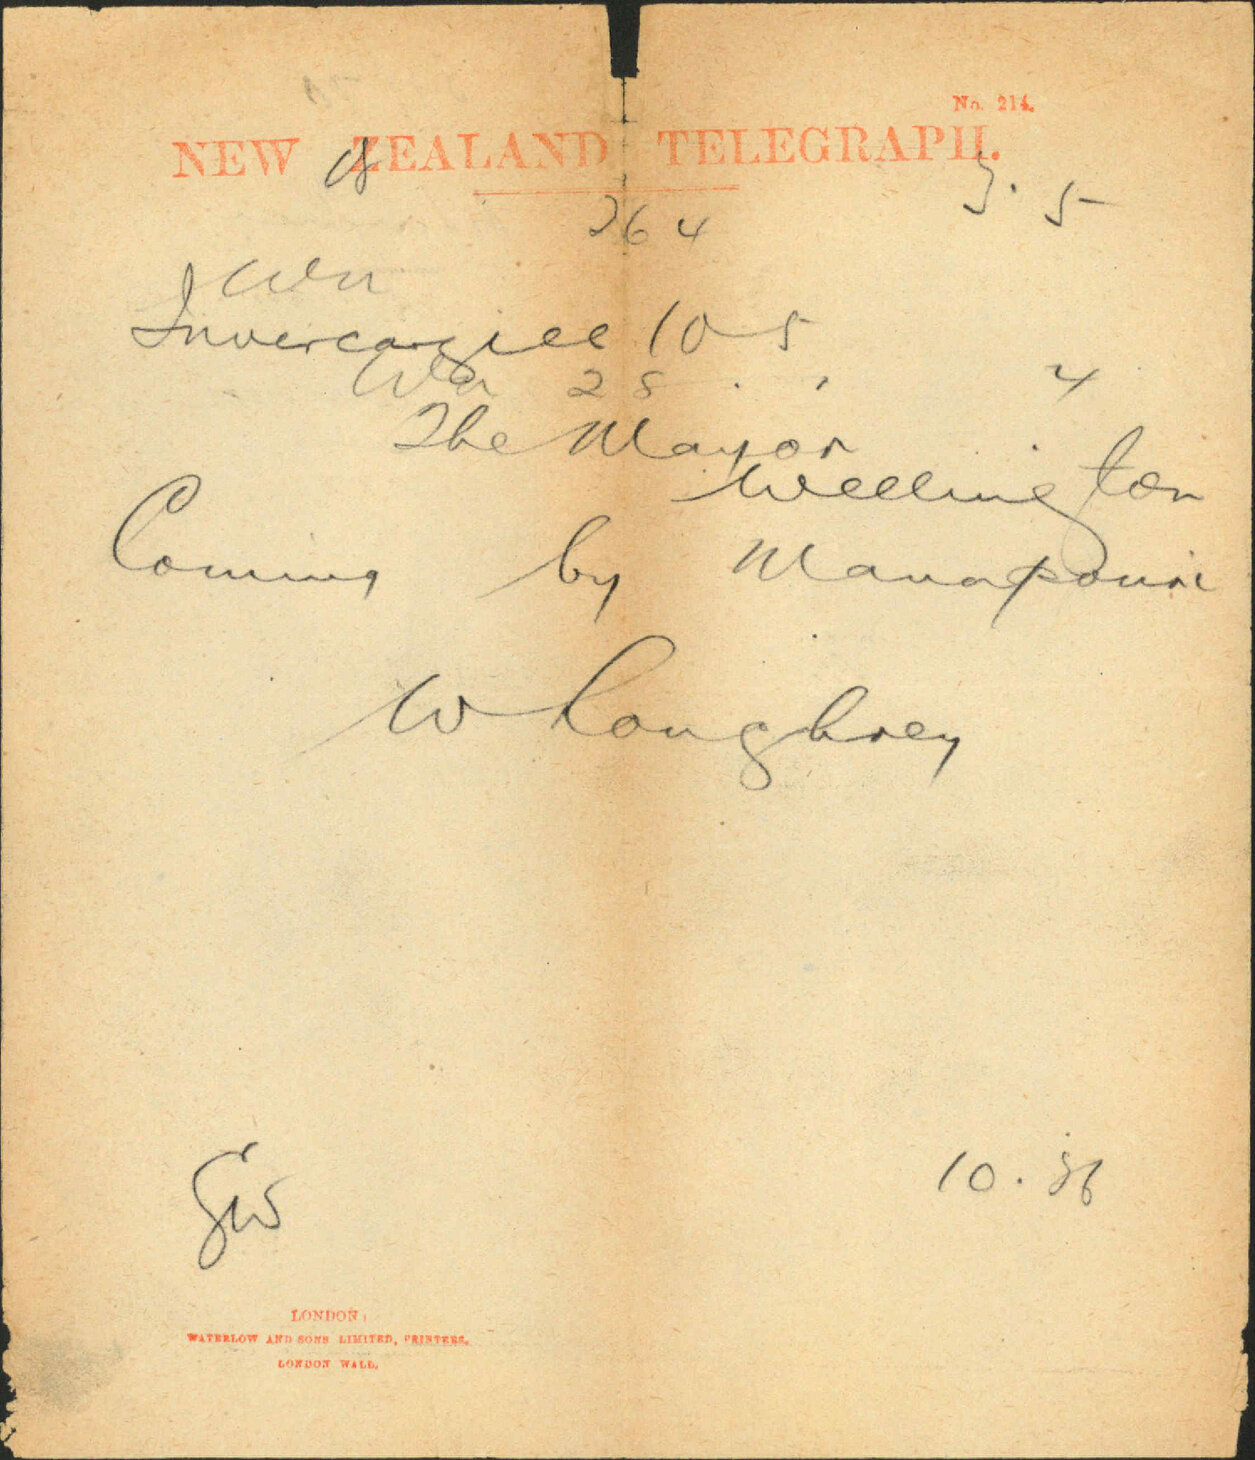 No. 214.
NEW ZEALAND TELEGRAPH.
3.5
264
Wn
Invercargill 10 5
Wn 28 4
The Mayor
Wellington
Coming by Manapouri
W Loughrey
10.36
LONDON:
WATERLOW AND SONS LIMITED, PRINTERS,
LONDON WALL.